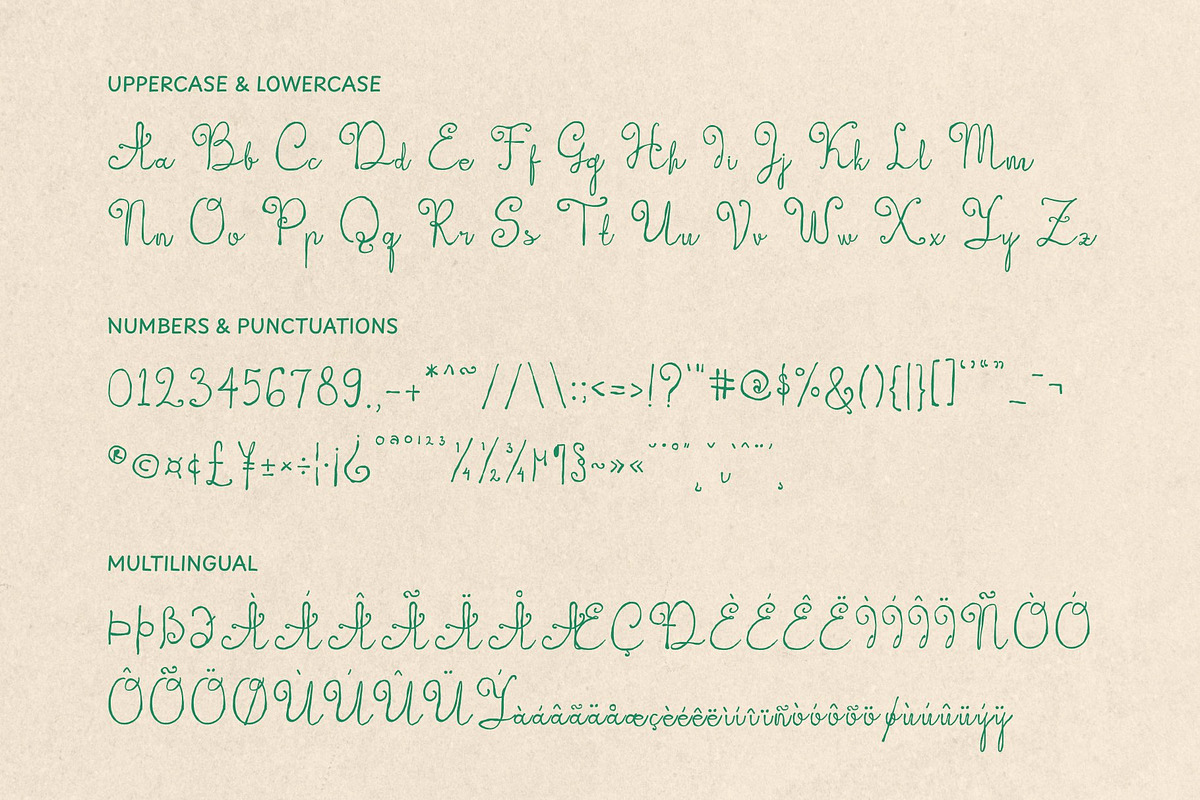 UPPERCASE & LOWERCASE
Aa Bb Cc Dd Ee Ff Gg Hh Ii Jj Kk Ll Mm
Nn Oo Pp Qq Rr Ss Tt Uu Vv Ww Xx Yy Zz
NUMBERS & PUNCTUATIONS
0123456789.,-+*^~//\\:;<=>!?'"#@$%&(){|}[]‘’“”_¯¬
®©¤¢£¥±×÷¦·¡¿ºª⁰¹²³¼½¾µ¶§~»«˘˙°˝˛ˇ◡`^¨´¸
MULTILINGUAL
ÞþßƏÀÁÂÃÄÅÆÇÐÈÉÊËÌÍÎÏÑÒÓ
ÔÕÖØÙÚÛÜÝàáâãäåæçèéêëìíîïñòóôõöøùúûüýÿ